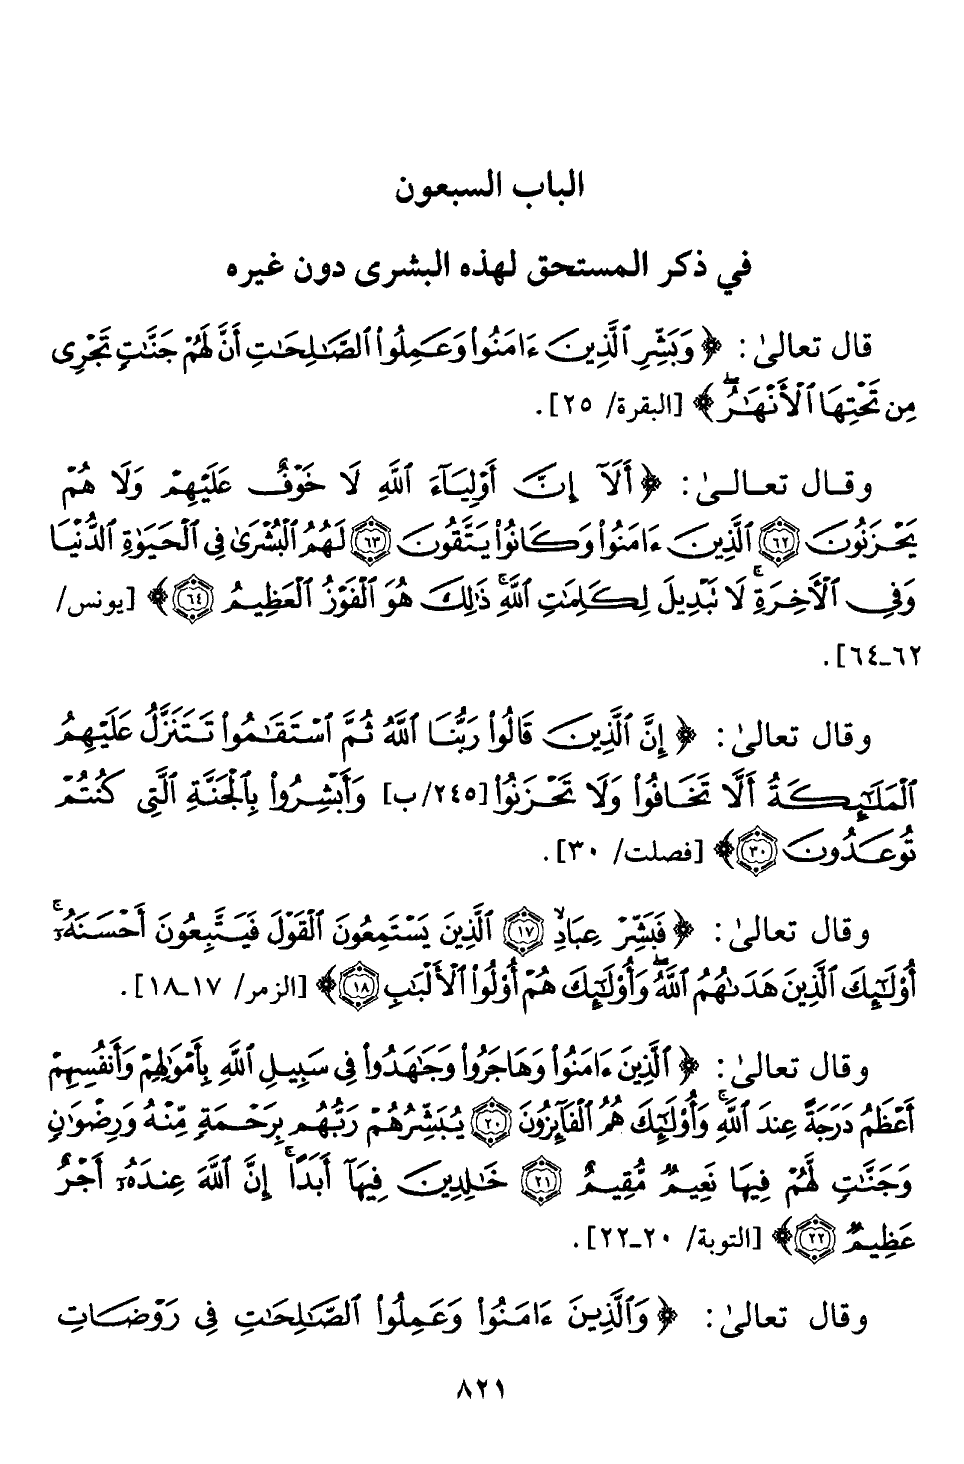 الباب السبعون
في ذكر المستحق لهذه البشرى دون غيره
قال تعالىٰ: ﴿ وَبَشِّرِ ٱلَّذِينَ ءَامَنُوا۟ وَعَمِلُوا۟ ٱلصَّـٰلِحَـٰتِ أَنَّ لَهُمْ جَنَّـٰتٍ تَجْرِى
مِن تَحْتِهَا ٱلْأَنْهَـٰرُ ۖ ﴾ [البقرة/ ٢٥].
وقـال تعـالـىٰ: ﴿ أَلَآ إِنَّ أَوْلِيَآءَ ٱللَّهِ لَا خَوْفٌ عَلَيْهِمْ وَلَا هُمْ
يَحْزَنُونَ ۝٦٢ ٱلَّذِينَ ءَامَنُوا۟ وَكَانُوا۟ يَتَّقُونَ ۝٦٣ لَهُمُ ٱلْبُشْرَىٰ فِى ٱلْحَيَوٰةِ ٱلدُّنْيَا
وَفِى ٱلْـَٔاخِرَةِ ۚ لَا تَبْدِيلَ لِكَلِمَـٰتِ ٱللَّهِ ۚ ذَٰلِكَ هُوَ ٱلْفَوْزُ ٱلْعَظِيمُ ۝٦٤ ﴾ [يونس/
٦٢ـ٦٤].
وقال تعالىٰ: ﴿ إِنَّ ٱلَّذِينَ قَالُوا۟ رَبُّنَا ٱللَّهُ ثُمَّ ٱسْتَقَـٰمُوا۟ تَتَنَزَّلُ عَلَيْهِمُ
ٱلْمَلَـٰٓئِكَةُ أَلَّا تَخَافُوا۟ وَلَا تَحْزَنُوا۟ [٢٤٥/ب] وَأَبْشِرُوا۟ بِٱلْجَنَّةِ ٱلَّتِى كُنتُمْ
تُوعَدُونَ ۝٣٠ ﴾ [فصلت/ ٣٠].
وقال تعالىٰ: ﴿ فَبَشِّرْ عِبَادِ ۙ ۝١٧ ٱلَّذِينَ يَسْتَمِعُونَ ٱلْقَوْلَ فَيَتَّبِعُونَ أَحْسَنَهُۥٓ ۚ
أُو۟لَـٰٓئِكَ ٱلَّذِينَ هَدَىٰهُمُ ٱللَّهُ ۖ وَأُو۟لَـٰٓئِكَ هُمْ أُو۟لُوا۟ ٱلْأَلْبَـٰبِ ۝١٨ ﴾ [الزمر/ ١٧ـ١٨].
وقال تعالىٰ: ﴿ ٱلَّذِينَ ءَامَنُوا۟ وَهَاجَرُوا۟ وَجَـٰهَدُوا۟ فِى سَبِيلِ ٱللَّهِ بِأَمْوَٰلِهِمْ وَأَنفُسِهِمْ
أَعْظَمُ دَرَجَةً عِندَ ٱللَّهِ ۚ وَأُو۟لَـٰٓئِكَ هُمُ ٱلْفَآئِزُونَ ۝٢٠ يُبَشِّرُهُمْ رَبُّهُم بِرَحْمَةٍ مِّنْهُ وَرِضْوَٰنٍ
وَجَنَّـٰتٍ لَّهُمْ فِيهَا نَعِيمٌ مُّقِيمٌ ۝٢١ خَـٰلِدِينَ فِيهَآ أَبَدًا ۚ إِنَّ ٱللَّهَ عِندَهُۥٓ أَجْرٌ
عَظِيمٌ ۝٢٢ ﴾ [التوبة/ ٢٠ـ٢٢].
وقال تعالىٰ: ﴿ وَٱلَّذِينَ ءَامَنُوا۟ وَعَمِلُوا۟ ٱلصَّـٰلِحَـٰتِ فِى رَوْضَاتِ
٨٢١